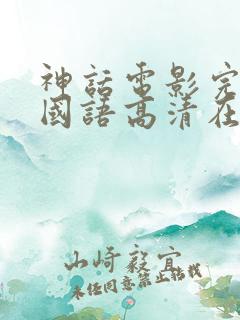 神話電影完
國語高清在
山崎毅宜
未任同意禁止转载